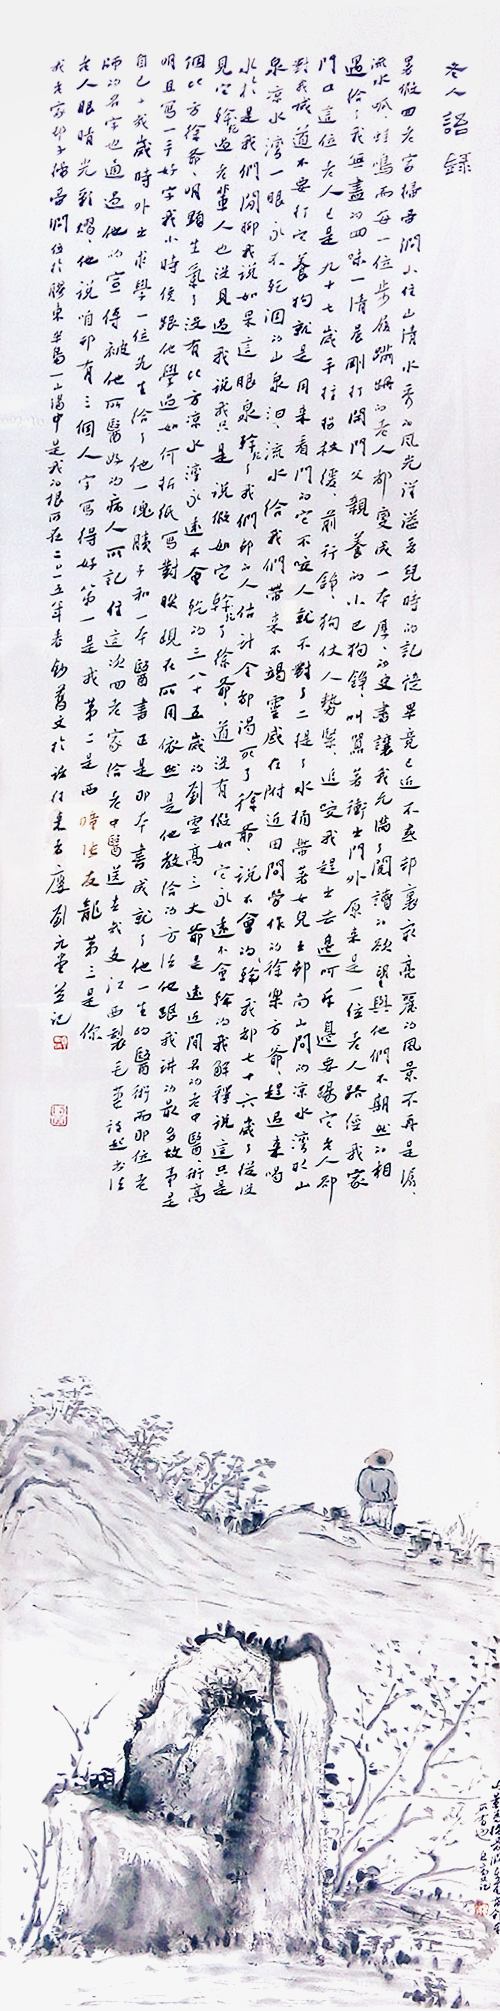 老人語録
暑假四老宮掃雪澗小住山清水秀的風光洋溢吾兒時的記憶畢竟已近不惑却裏最亮麗的風景不再是潺潺
流水呱呱蛙鳴而每一位步履蹣跚的老人都變成一本厚厚的史書讓我充滿了閱讀的欲望與他們不期然的相
遇給了我無盡的回味一清晨剛打開門父親養的小巴狗錚錚叫鬧着衝出門外原來是一位老人路徑我家
門口這位老人已是九十七歲手拄拐杖緩緩前行錚錚狗仗人勢緊緊追咬我趕出去邊呵斥邊要踢它老人却
對我喊道不要打它養狗就是用來看門的它不咬人就不對了二提了水桶帶着女兒去邨南山間的凉水灣打山
泉凉水灣一眼永不乾涸的山泉汩汩流水給我們帶來不竭靈感在附近田間勞作的徐樂方爺爺趕過來喝
水於是我們閒聊我說如果這眼泉乾了我們邨的人估計全都渴死了徐爺爺說不會乾的我都七十六歲了從没
見它乾過老輩人也没見過我說我只是說假如它乾了徐爺爺道没有假如它永遠不會乾的我解釋說這只是
個比方徐爺爺明顯生氣了没有比方凉水灣永遠不會乾的三八十五歲的劉雲高三大爺是遠近聞名的老中醫術高
明且寫一手好字我小時候跟他學過如何折紙寫對聯現在所用依然是他教給的方法他跟我講的最多故事是
自己十幾歲時外出求學一位先生給了他一塊胰子和一本醫書正是那本書成就了他一生的醫術而那位老
師的名字也通過他的宣傳被他所醫好的病人所記住這次回老家給老中醫送去我支江西製毛筆談起書法
老人眼睛光彩熠熠他說咱邨有三個人字寫得好第一是我第二是西 第三是你
我老家邨子掃雪澗位於膠東半島一山溝中是我的根所在二〇一五年春鈔舊文於 劉元堂並記